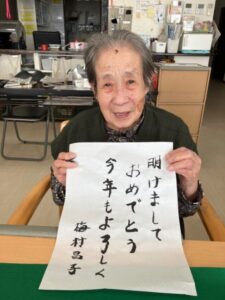 明けまして
おめでとう
今年もよろしく
梅村昌子